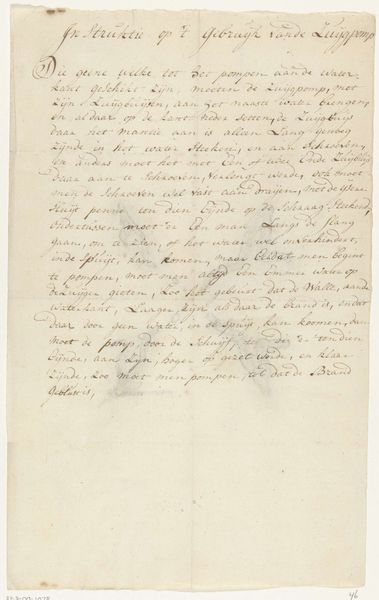 Instruktie op 't Gebruijk vande Zuijgpomp
Die geene welke tot het pompen aan de water
kant geschikt zijn, moeten de Zuijgpomp, met
zijn Zuijgbuijsen, aan het naaste water brengen,
en aldaar, op de kant neder setten, de Zuijgbuijs
daar het mantie aan is alleen Lang genoeg
zijnde in het water steeken, en aan schroeven,
en anders moet het met Een of twee Ende Zuijgbuijs
daar aan te schroeven, verlengt werde, ook moet
men de schroeven wel vast aan draijen, met de
Sluijt penne ten dien Eijnde op de
ondertussen moet er Een man Langs de slang
gaan, om te zien, of het water, wel onverhindert,
inde spuijt, kan komen, maar Eerdat men begint
te pompen, moet men altijd Een Emmer water op
de Zuijger gieten, Zoo het gebeurt dat de Walle, aande
waterkant, Laager zijn als daar de brand is, en dat
daar door geen water, in de spuijt kan koomen, dan
moet de pomp, door de Schuijf, die er ten dien
Eijnde, aan zijn, hoger op gezet werde, en klaar
zijnde, Zoo moet men pompen, tot dat de Brand
geblust is,
46